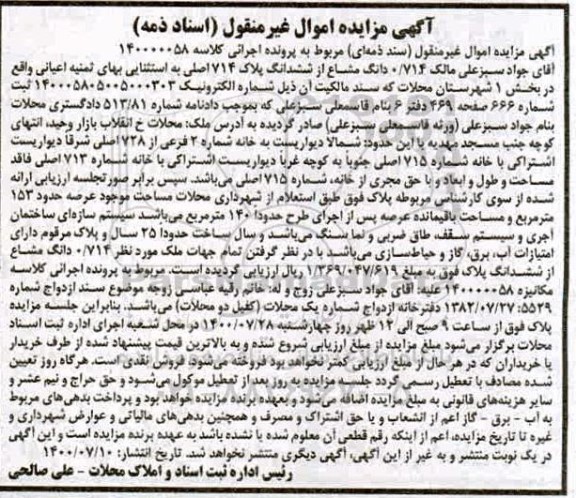 آگهی مزایده اموال غیرمنقول (اسناد ذمه)
آگهی مزایده اموال غیرمنقول (سند ذمه‌ای) مربوط به پرونده اجرائی کلاسه ۱۴۰۰۰۰۰۵۸
آقای جواد سبزعلی مالک ۰/۷۱۴ دانگ مشاع از ششدانگ پلاک ۷۱۴ اصلی به استثنایی بهای ثمنیه اعیانی واقع
در بخش ۱ شهرستان محلات که سند مالکیت آن ذیل شماره الکترونیک ۱۴۰۰۰۵۸۰۵۰۰۵۰۰۰۳۰۳ ثبت
شماره ۶۶۶ صفحه ۴۶۹ دفتر ۶ بنام قاسمعلی سبزعلی که بموجب دادنامه شماره ۵۱۳/۸۱ دادگستری محلات
بنام جواد سبزعلی (ورثه قاسمعلی سبزعلی) صادر گردیده به آدرس ملک: محلات خ انقلاب بازار وحید، انتهای
کوچه جنب مسجد مهدیه با این حدود: شمالا دیواریست به خانه شماره ۲ فرعی از ۷۲۸ اصلی شرقا دیواریست
اشتراکی با خانه شماره ۷۱۵ اصلی جنوبا به کوچه غربا دیواریست اشتراکی با خانه شماره ۷۱۳ اصلی فاقد
مساحت و طول و ابعاد و با حق مجری از خانه شماره ۷۱۵ اصلی می‌باشد. سپس برابر صورتجلسه ارزیابی ارائه
شده از سوی کارشناس مربوطه پلاک فوق طبق استعلام از شهرداری محلات مساحت موجود عرصه حدود ۱۵۳
مترمربع و مساحت باقیمانده عرصه پس از اجرای طرح حدودا ۱۴۰ مترمربع می‌باشد سیستم سازه‌ای ساختمان
آجری و سیستم سقف، طاق ضربی و نما سنگ می‌باشد و سال ساخت حدودا ۲۵ سال و پلاک مرقوم دارای
امتیازات آب، برق، گاز و حیاط‌سازی می‌باشد با در نظر گرفتن تمام جهات ملک مورد نظر ۰/۷۱۴ دانگ مشاع
از ششدانگ پلاک فوق به مبلغ ۱/۳۶۹/۰۴۷/۶۱۹ ریال ارزیابی گردیده است. مربوط به پرونده اجرائی کلاسه
مکانیزه ۱۴۰۰۰۰۰۵۸ علیه: آقای جواد سبزعلی زوج و له: خانم رقیه عباسی زوجه موضوع سند ازدواج شماره
۵۵۲۹: ۱۳۸۲/۰۷/۲۷ دفترخانه ازدواج شماره یک محلات (کفیل دو محلات) می‌باشد. بنابراین جلسه مزایده
پلاک فوق از ساعت ۹ صبح الی ۱۲ ظهر روز چهارشنبه ۱۴۰۰/۰۷/۲۸ در محل شعبه اجرای اداره ثبت اسناد
محلات برگزار می‌شود مبلغ مزایده از مبلغ ارزیابی شروع شده و به بالاترین قیمت پیشنهاد شده از طرف خریدار
یا خریداران که در هر حال از مبلغ ارزیابی کمتر نخواهد بود فروخته می‌شود. فروش نقدی است. هرگاه روز تعیین
شده مصادف با تعطیل رسمی گردد جلسه مزایده به روز بعد از تعطیل موکول می‌شود و حق حراج و نیم عشر و
سایر هزینه‌های قانونی به مبلغ مزایده اضافه می‌شود و بعهده برنده مزایده خواهد بود و پرداخت بدهی‌های مربوط
به آب - برق - گاز اعم از انشعاب و یا حق اشتراک و مصرف و همچنین بدهی‌های مالیاتی و عوارض شهرداری و
غیره تا تاریخ مزایده، اعم از اینکه رقم قطعی آن معلوم شده یا نشده باشد به عهده برنده مزایده است و این آگهی
در یک نوبت منتشر و به غیر از این آگهی، آگهی دیگری منتشر نخواهد شد. تاریخ انتشار: ۱۴۰۰/۰۷/۱۰
رئیس اداره ثبت اسناد و املاک محلات - علی صالحی